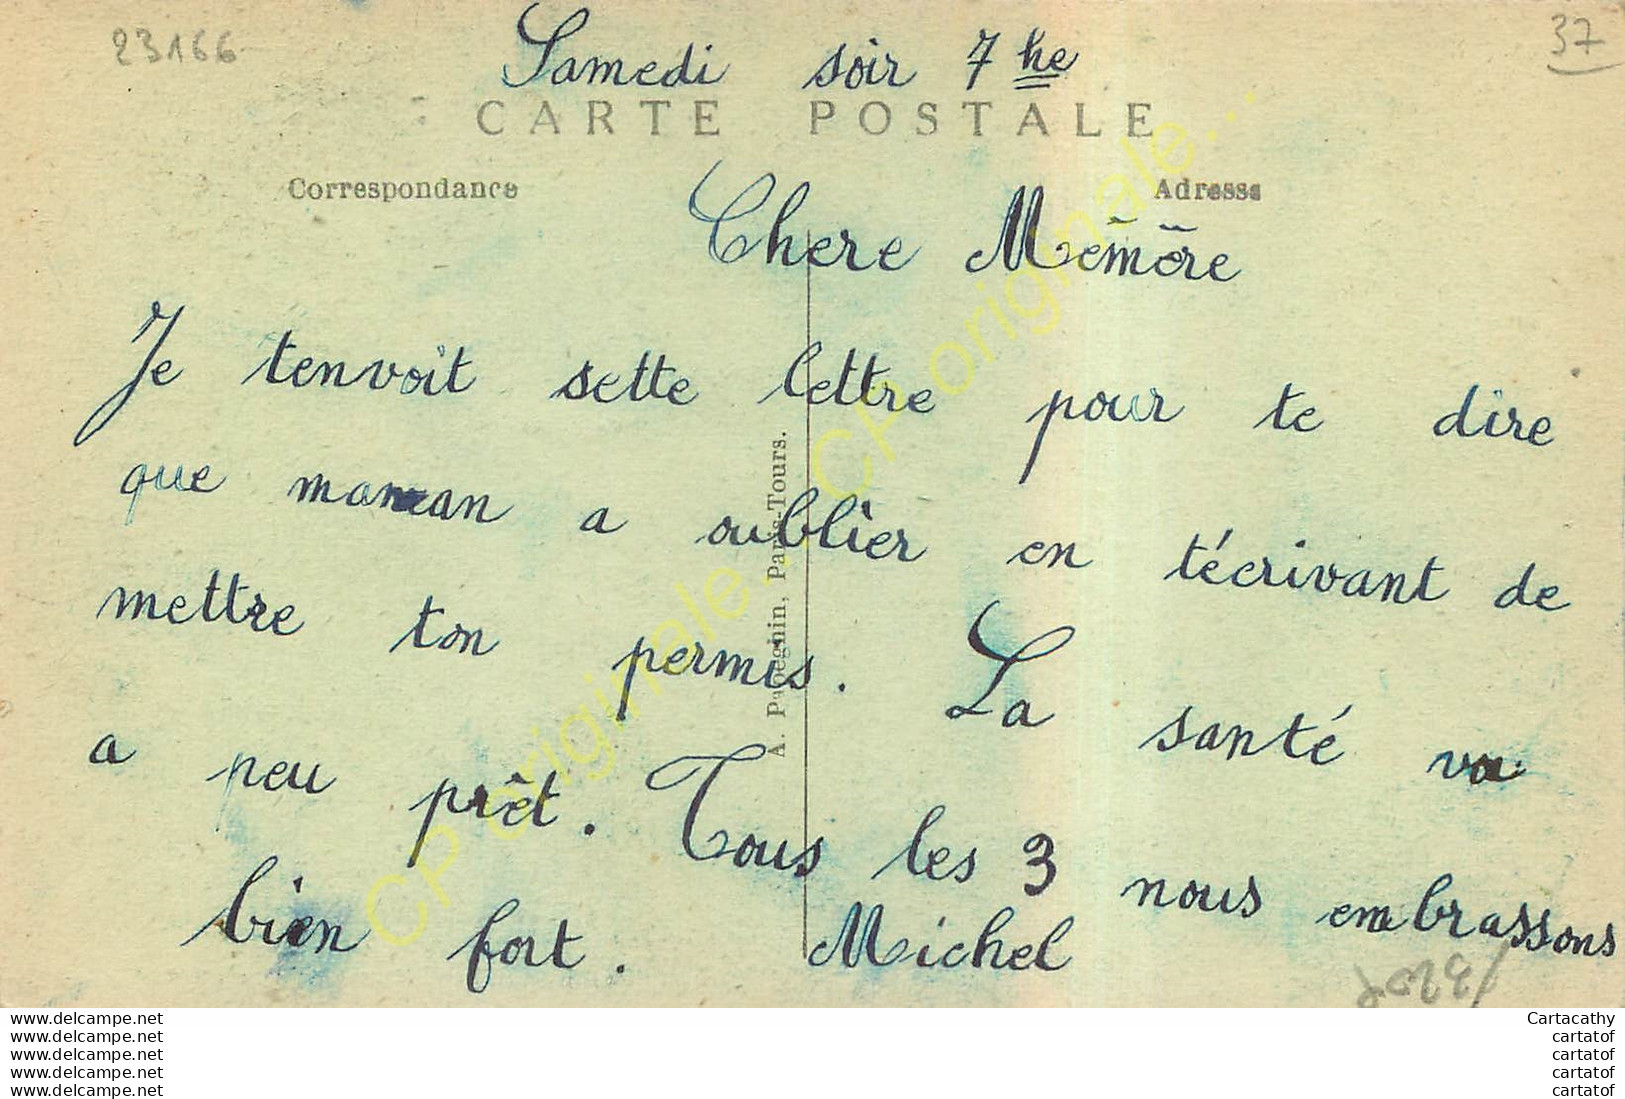 23166
37
Samedi soir 7 he
CARTE POSTALE
Correspondance
Adresse
Chere Mēmōre
Je tenvoit sette lettre pour te dire
que maman a oublier en técrivant de
mettre ton permis. La santé va
a peu prèt. Tous les 3 nous embrassons
bien fort. Michel
A. Papeghin, Paris-Tours.
CP originale... CP originale... CP originale...
www.delcampe.net
www.delcampe.net
www.delcampe.net
www.delcampe.net
www.delcampe.net
Cartacathy
cartatof
cartatof
cartatof
cartatof